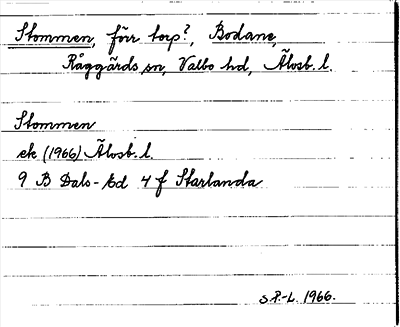 Stommen, förr torp?, Bodane,
Råggärds sn, Valbo hd, Älvsb. l.
Stommen
ek (1966) Älvsb. l.
9 B Dals-Ed 4 f Starlanda
S P.-L. 1966.